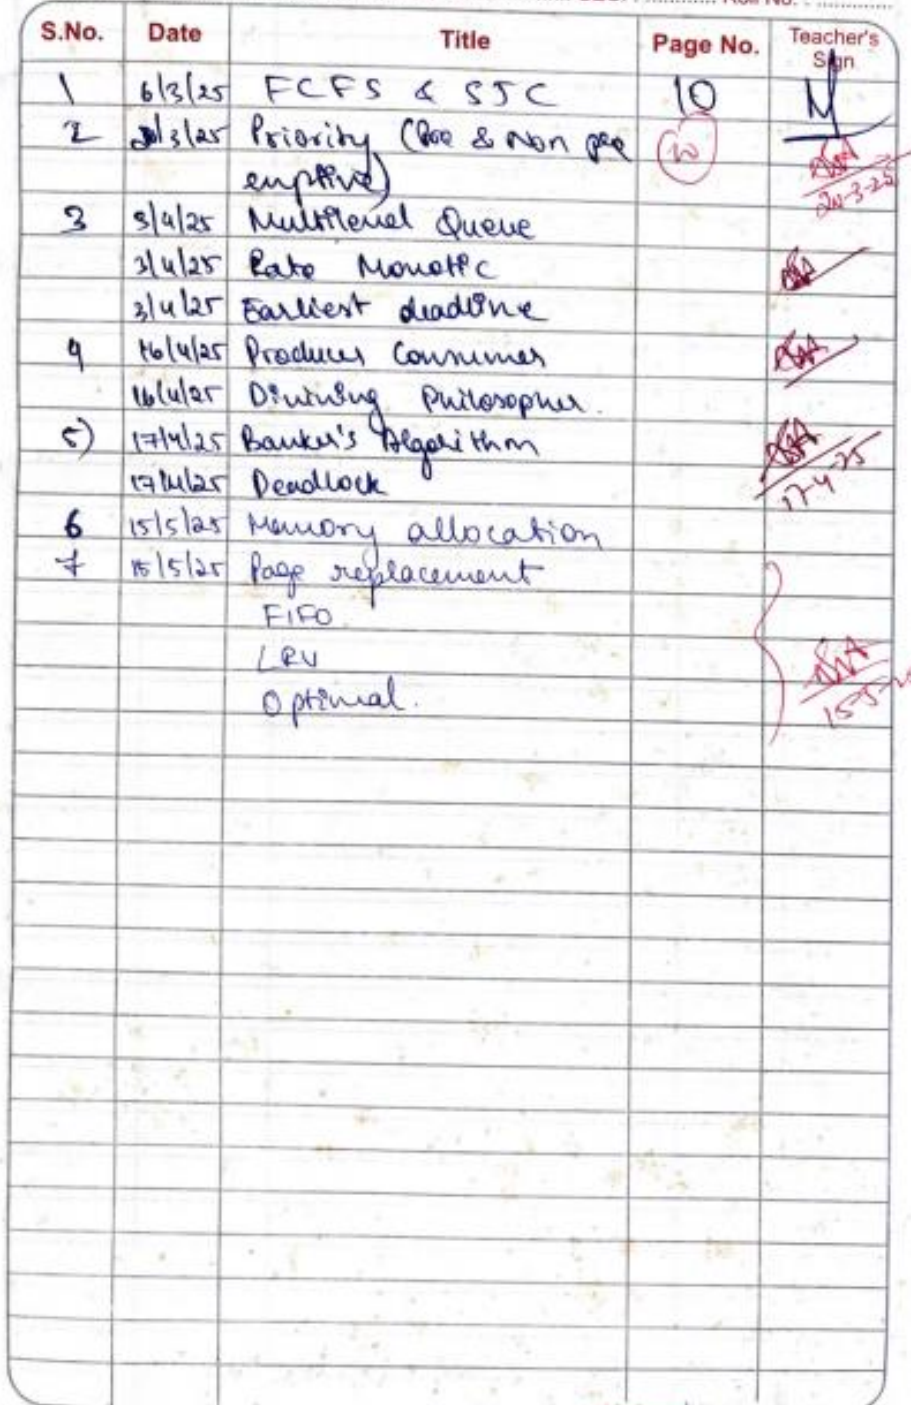 Roll No. :
S.No. Date Title Page No. Teacher's Sign
1 6/3/25 FCFS & SJC 10
2 /3/25 Priority (Pre & Non pre 10
emptive)
24-3-25
3 3/4/25 Multilevel Queue
3/4/25 Rate Monotic
3/4/25 Earliest deadline
4 16/4/25 Producer Consumer
16/4/25 Dinining Philosopher.
5) 17/4/25 Banker's Algorithm
17/4/25 Deadlock
17-4-25
6 15/5/25 Memory allocation
7 15/5/25 Page replacement
FIFO
LRU
Optimal.
15-5-